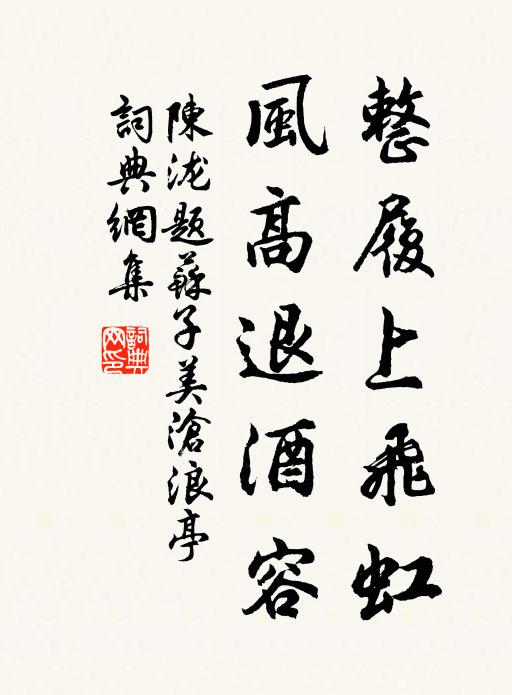 整履上飛虹
風高退酒容
陳泷題蘇子美滄浪亭
詞典網集
詞典
网印